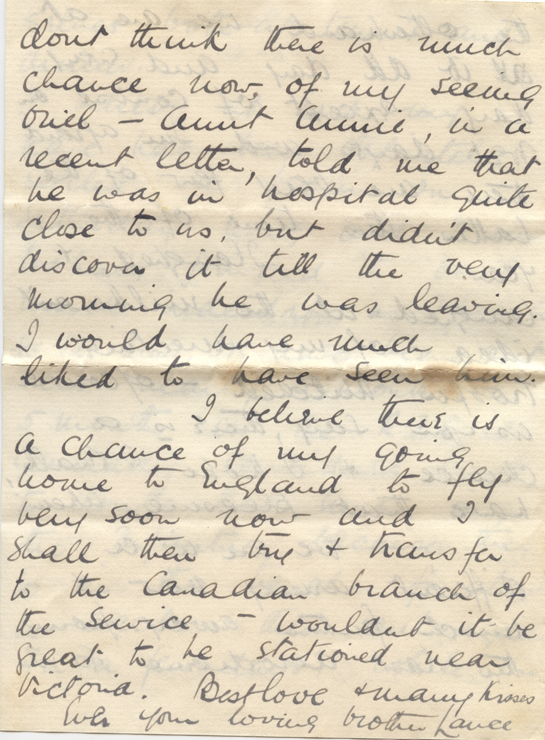 dont think there is much
chance now, of my seeing
Oriel – Aunt Annie, in a
recent letter, told me that
he was in hospital quite
close to us, but didn't
discover it till the very
morning he was leaving.
I would have much
liked to have seen him.
I believe there is
a chance of my going
home to England to fly
very soon now and I
shall then try + transfer
to the Canadian branch of
the Service – wouldn't it be
great to be stationed near
Victoria. Best love + many kisses
Ever your loving brother Lance